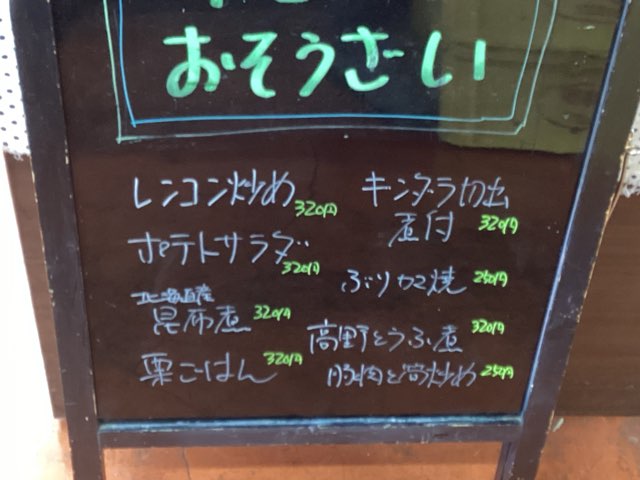 おそうざい
レンコン炒め
320円
ポテトサラダ
320円
北海道産
昆布煮 320円
栗ごはん 320円
キンダラ切出
煮付 320円
ぶりカマ焼 250円
高野とうふ煮 320円
豚肉と筍炒め 250円